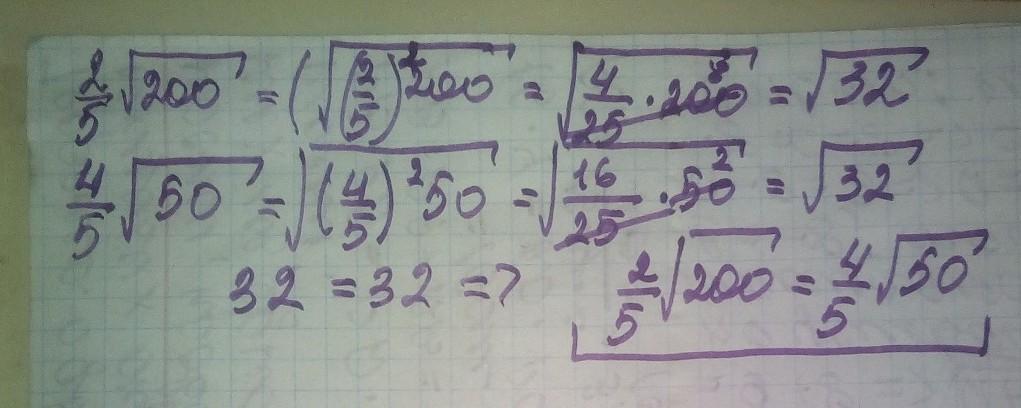 2/5 √200 = (√(2/5)²200 = √4/25 · 200 8 = √32
4/5 √50 = √(4/5)²50 = √16/25 · 50 2 = √32
32 = 32 => 2/5 √200 = 4/5 √50